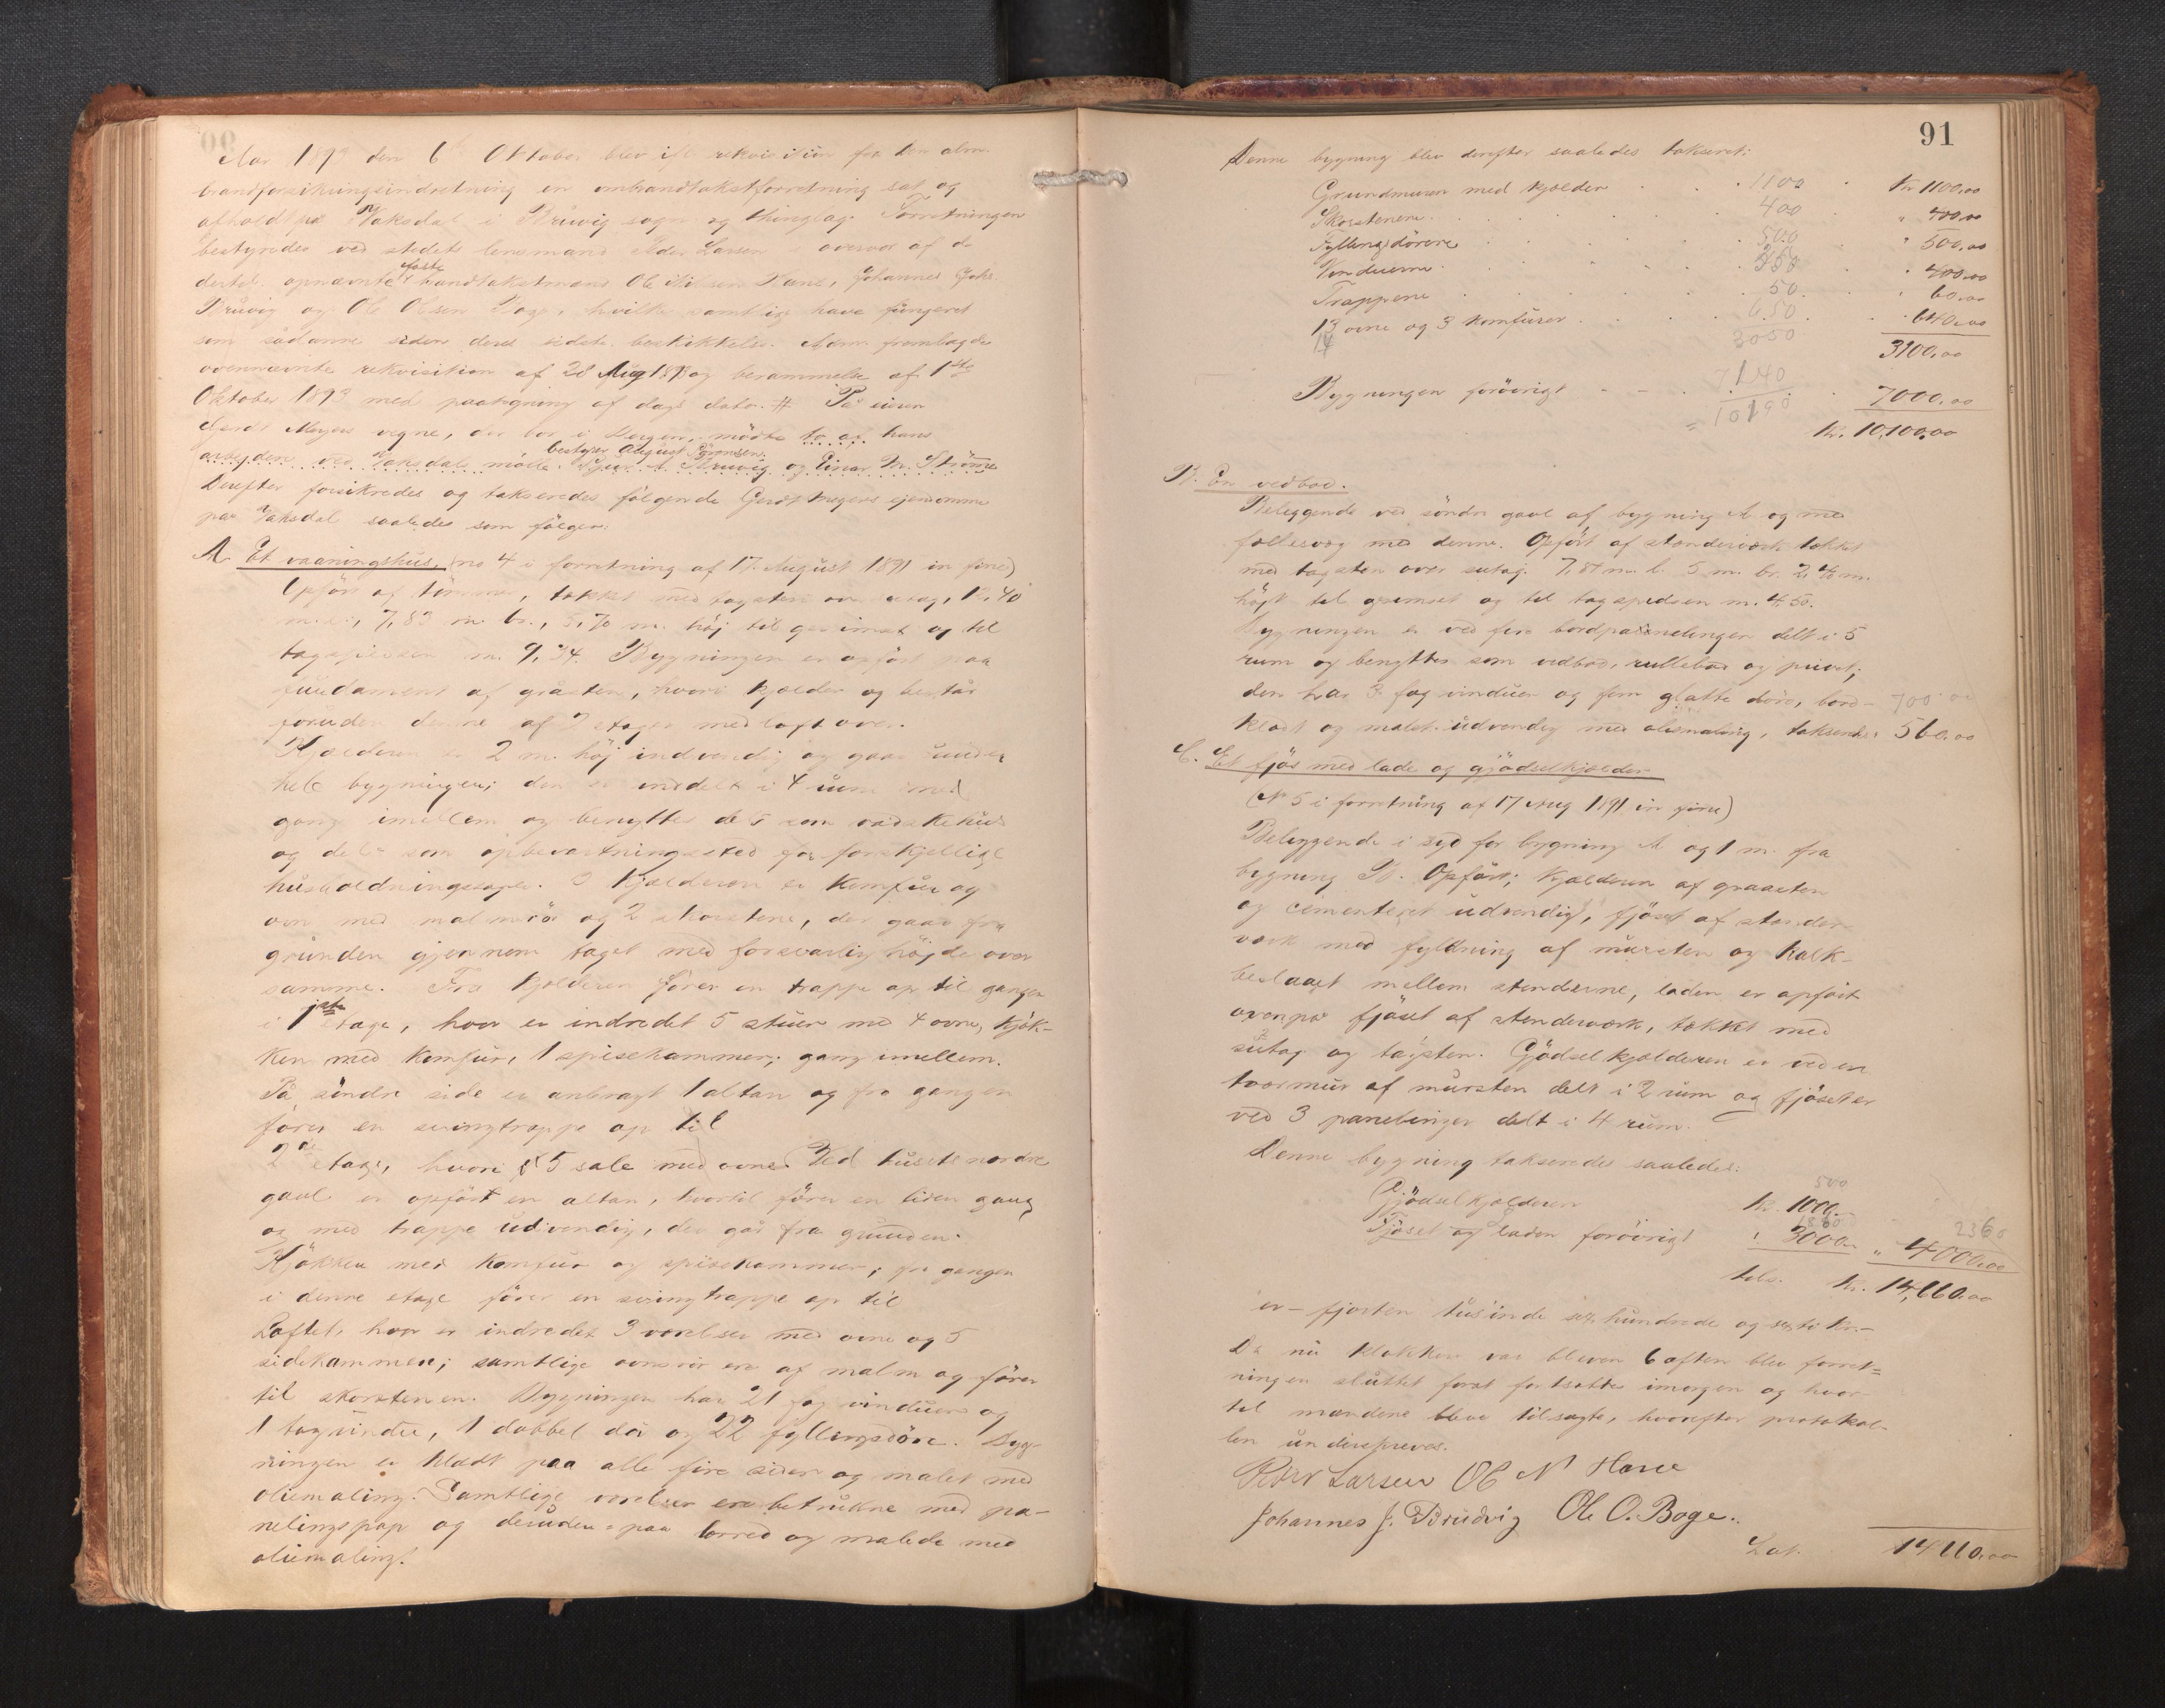 Aar 1893 den 6 Oktober blev ifl rekvisition fra den alm.
brandforsikringsindretning en ombrandtakstforretning sat og
afholdt paa Vaksdal i Bruvig sogn og thinglag. Forretningen
bestyredes ved stedets lensmand Peder Larsen i overvær af de
dertil opnævnte faste brandtakstmænd Ole Nilsen Hane, Johannes Johs
Bruvig og Ole Olsen Boge, hvilke samtlige have fungeret
som sådanne siden deres sidste beskikkelse. Adm fremlagde
ovennævnte rekvisition af 28 Aug 1893 og berammelse af 1ste
Oktober 1893 med paategning af dags dato. # På eieren
Gerdt Meyers vegne, der bor i Bergen, mödte to af hans
arbejdere ved Vaksdals mölle. bestyrer August Sörensen. Sjur A. Bruvig og Einar M. Strömme
Derefter forsikredes og takseredes fölgende Gerdt Meyers ejendomme
paa Vaksdal saaledes som fölger:
A. Et vaaningshus, (no 4 i forretning af 17. August 1891 in fine)
Opfört af tömmer, tækket med tagsten over sutag, 12,40
m. l., 7,83 m. br., 5,70 m. höj til gesimset og til
tagspidsen m. 9,34. Bygningen er opfört paa
fundament af gråsten, hvori kjælder og består
foruden denne af 2 etager med loft over.
Kjælderen er 2 m. höj indvendig og gaar under
hele bygningen; den er inddelt i 4 rum med
gang imellem og benyttes dels som vadskehus
og dels som opbevartningssted for forskjellige
husholdningssager. I kjælderen er komfur og
ovn med malmrör og 2 skorstene, der gaar fra
grunden gjennem taget med forsvarlig höjde over
samme. Fra kjælderen förer en trappe op til gangen
i 1ste etage, hvor er indredet 5 stuer med 4 ovne, kjök-
ken med komfur, 1 spisekammer; gang imellem.
På söndre side er anbragt 1 altan og fra gangen
förer en svingtrappe op til
2den etage, hvori 5 sale med ovne. Ved husets nordre
gavl er opfört en altan, hvortil förer en liden gang
og med trappe udvendig, der går fra grunden.
Kjökken med komfur og spisekammer; fra gangen
i denne etage förer en svingtrappe op til
Loftet, hvor er indredet 3 værelser med ovne og 5
sidekammer; samtlige ovnsrör ere af malm og förer
til skorstenen. Bygningen har 21 fag vinduer og
1 tagvindu, 1 dobbel dör og 22 fyllingsdöre. Byg-
ningen er klædt paa alle fire sider og malet med
oliemaling. Samtlige værelser ere betrukne med pa-
nelingspap og desuden paa lærred og malede med
oliemaling.
91
Denne bygning blev derefter saaledes takseret:
Grundmuren med kjælder 1100 Kr 1100,00
Skorstenene 400 " 400,00
Fyllingsdörene 500 " 500,00
Vinduerne 350 " 400,00
Trappene 50 " 60,00
13 ovne og 3 komfurer 650 640,00
14 3050 3100,00
Bygningen forövrigt 7140 7000,00
= 10190 Kr. 10,100,00
B. En vedbod.
Beliggende ved söndre gavl af bygning A og med
fællesvæg med denne. Opfört af stænderværk tækket
med tagsten over sutag. 7,80 m. l. 5 m. br. 2,40 m.
höjt til gesimset og til tagspidsen m. 4,50.
Bygningen er ved fire bordpannelinger delt i 5
rum og benyttes som vedbod, rullebod og privet;
den har 3 fag vinduer og fem glatte döre, bord- 700 00
klædt og malet udvendig med oliemaling, takseredes 560,00
C. Et fjös med lade og gjödselkjælder
(No 5 i forretning af 17 Aug 1891 in fine)
Beliggende i syd for bygning A og 1 m. fra
bygning B. Opfört; kjælderen af graasten
og cementeret udvendig, fjöset af stænder-
værk med fyldning af mursten og kalk-
beslaaet mellem stenderne, laden er opfört
ovenpå fjöset af stenderværk, tækket med
sutag og tagsten. Gjödselkjælderen er ved en
tværmur af mursten delt i 2 rum og fjöset er
ved 3 panelinger delt i 4 rum.
Denne bygning takseredes saaledes:
500
Gjödselkjælderen kr. 1000.-
1860 2360
Fjöset og laden forövrigt " 3000.- " 4000,00
tils. kr. 14,660.00
er - fjorten tusinde sex hundrede og sexti kr.-
Da nu klokken var bleven 6 aften blev forret-
ningen sluttet forat fortsættes imorgen og hvor-
til mændene bleve tilsagte, hvorefter protokol-
len underskreves.
Peder Larsen Ole N Hane
Johannes J. Brudvig Ole O. Boge.
Lat. 14660,00